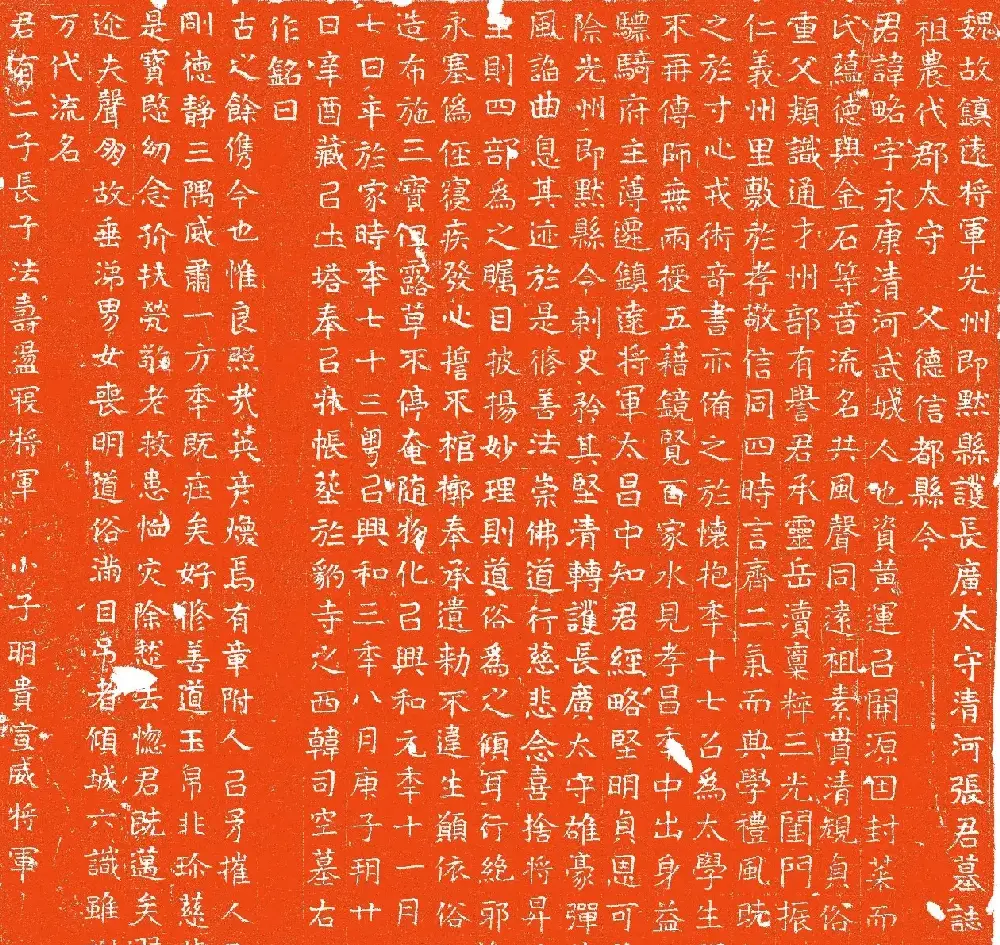 魏故鎮遠將軍光州即默縣護長廣太守清河張君墓誌
祖農代郡太守 父德信都縣令
君諱略字永康清河武城人也資黃運㠯開源因封葉而
氏蘊德與金石等音流名共風聲同遠祖素貫清規貞俗
重父類識通才州部有譽君承靈岳瀆稟粹三光閨門振
仁義州里敷於孝敬信同四時言齊二氣而典學禮風既
之於寸心戎術奇書亦備之於懷抱年十七㠯為太學生
不再傳師無兩授五藉鏡覽百家永見孝昌季中出身益
驃騎府主薄遷鎮遠將軍太昌中知君經略堅明貞恩可
除光州即默縣令刺史矜其堅清轉護長廣太守雄豪彈
風謟曲息其迹於是修善法崇佛道行慈悲念喜捨將昇
至則四部為之矚目披揚妙理則道俗為之傾耳行絕邪
永塞為侄寢疾發心誓不棺槨奉承遺勅不違生顚依俗
造布施三寶但露草不停奄随物化㠯興和元年十一月
七日卒於家時年七十三粵㠯興和三年八月庚子玥廿
日辛酉藏㠯出塔奉㠯牀帳塟於豹寺之西韓司空墓右
作銘曰
古之餘儁今也惟良照哉英彦煥焉有章附人㠯矛摧人
剛德靜三隅威肅一方年既疰矣好修善道玉帛非珍慈
是寶愍幼念价扶㷀敬老救患恤灾除愁去惚君既邁矣
迩失聲朋故垂涕男女喪明道俗滿目吊者傾城六識雖
万代流名
君有二子長子法壽盪寇將軍 小子明貴宣威將軍